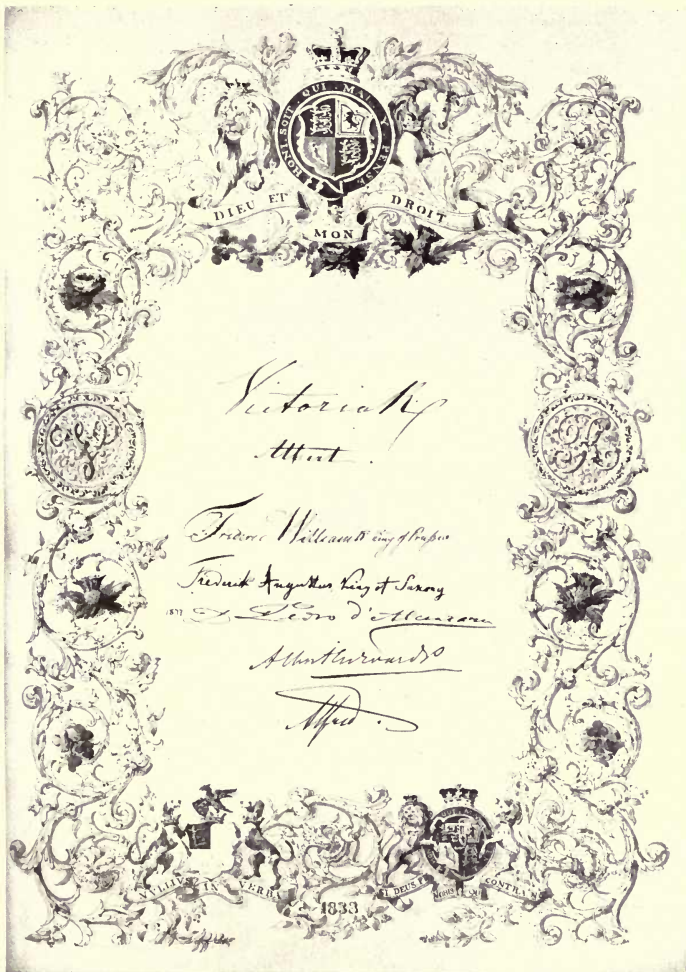 HONI · SOIT · QUI · MAL · Y · PENSE
DIEU ET MON DROIT
Victoria R
Albert.
Frederic William King of Prussia
Frederick Augustus King of Saxony
1871 D Pedro d'Alcantara
Albert Edward
Alfred.
NULLIUS IN VERBA
SI DEUS NOBIS CONTRA NOS
1833